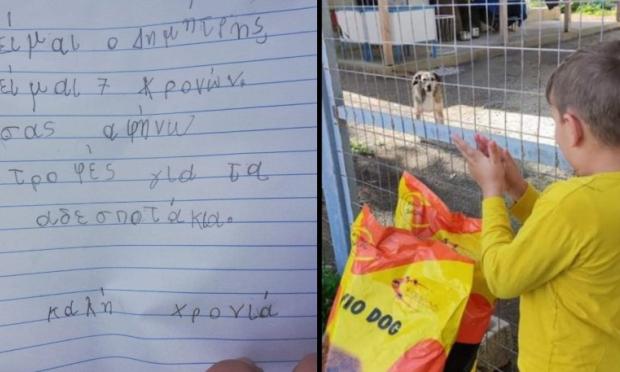 είμαι ο Δημήτρης
είμαι 7 χρονών.
σας αφήνω
τροφές για τα
αδεσποτάκια.
καλή χρονιά
IO DOG